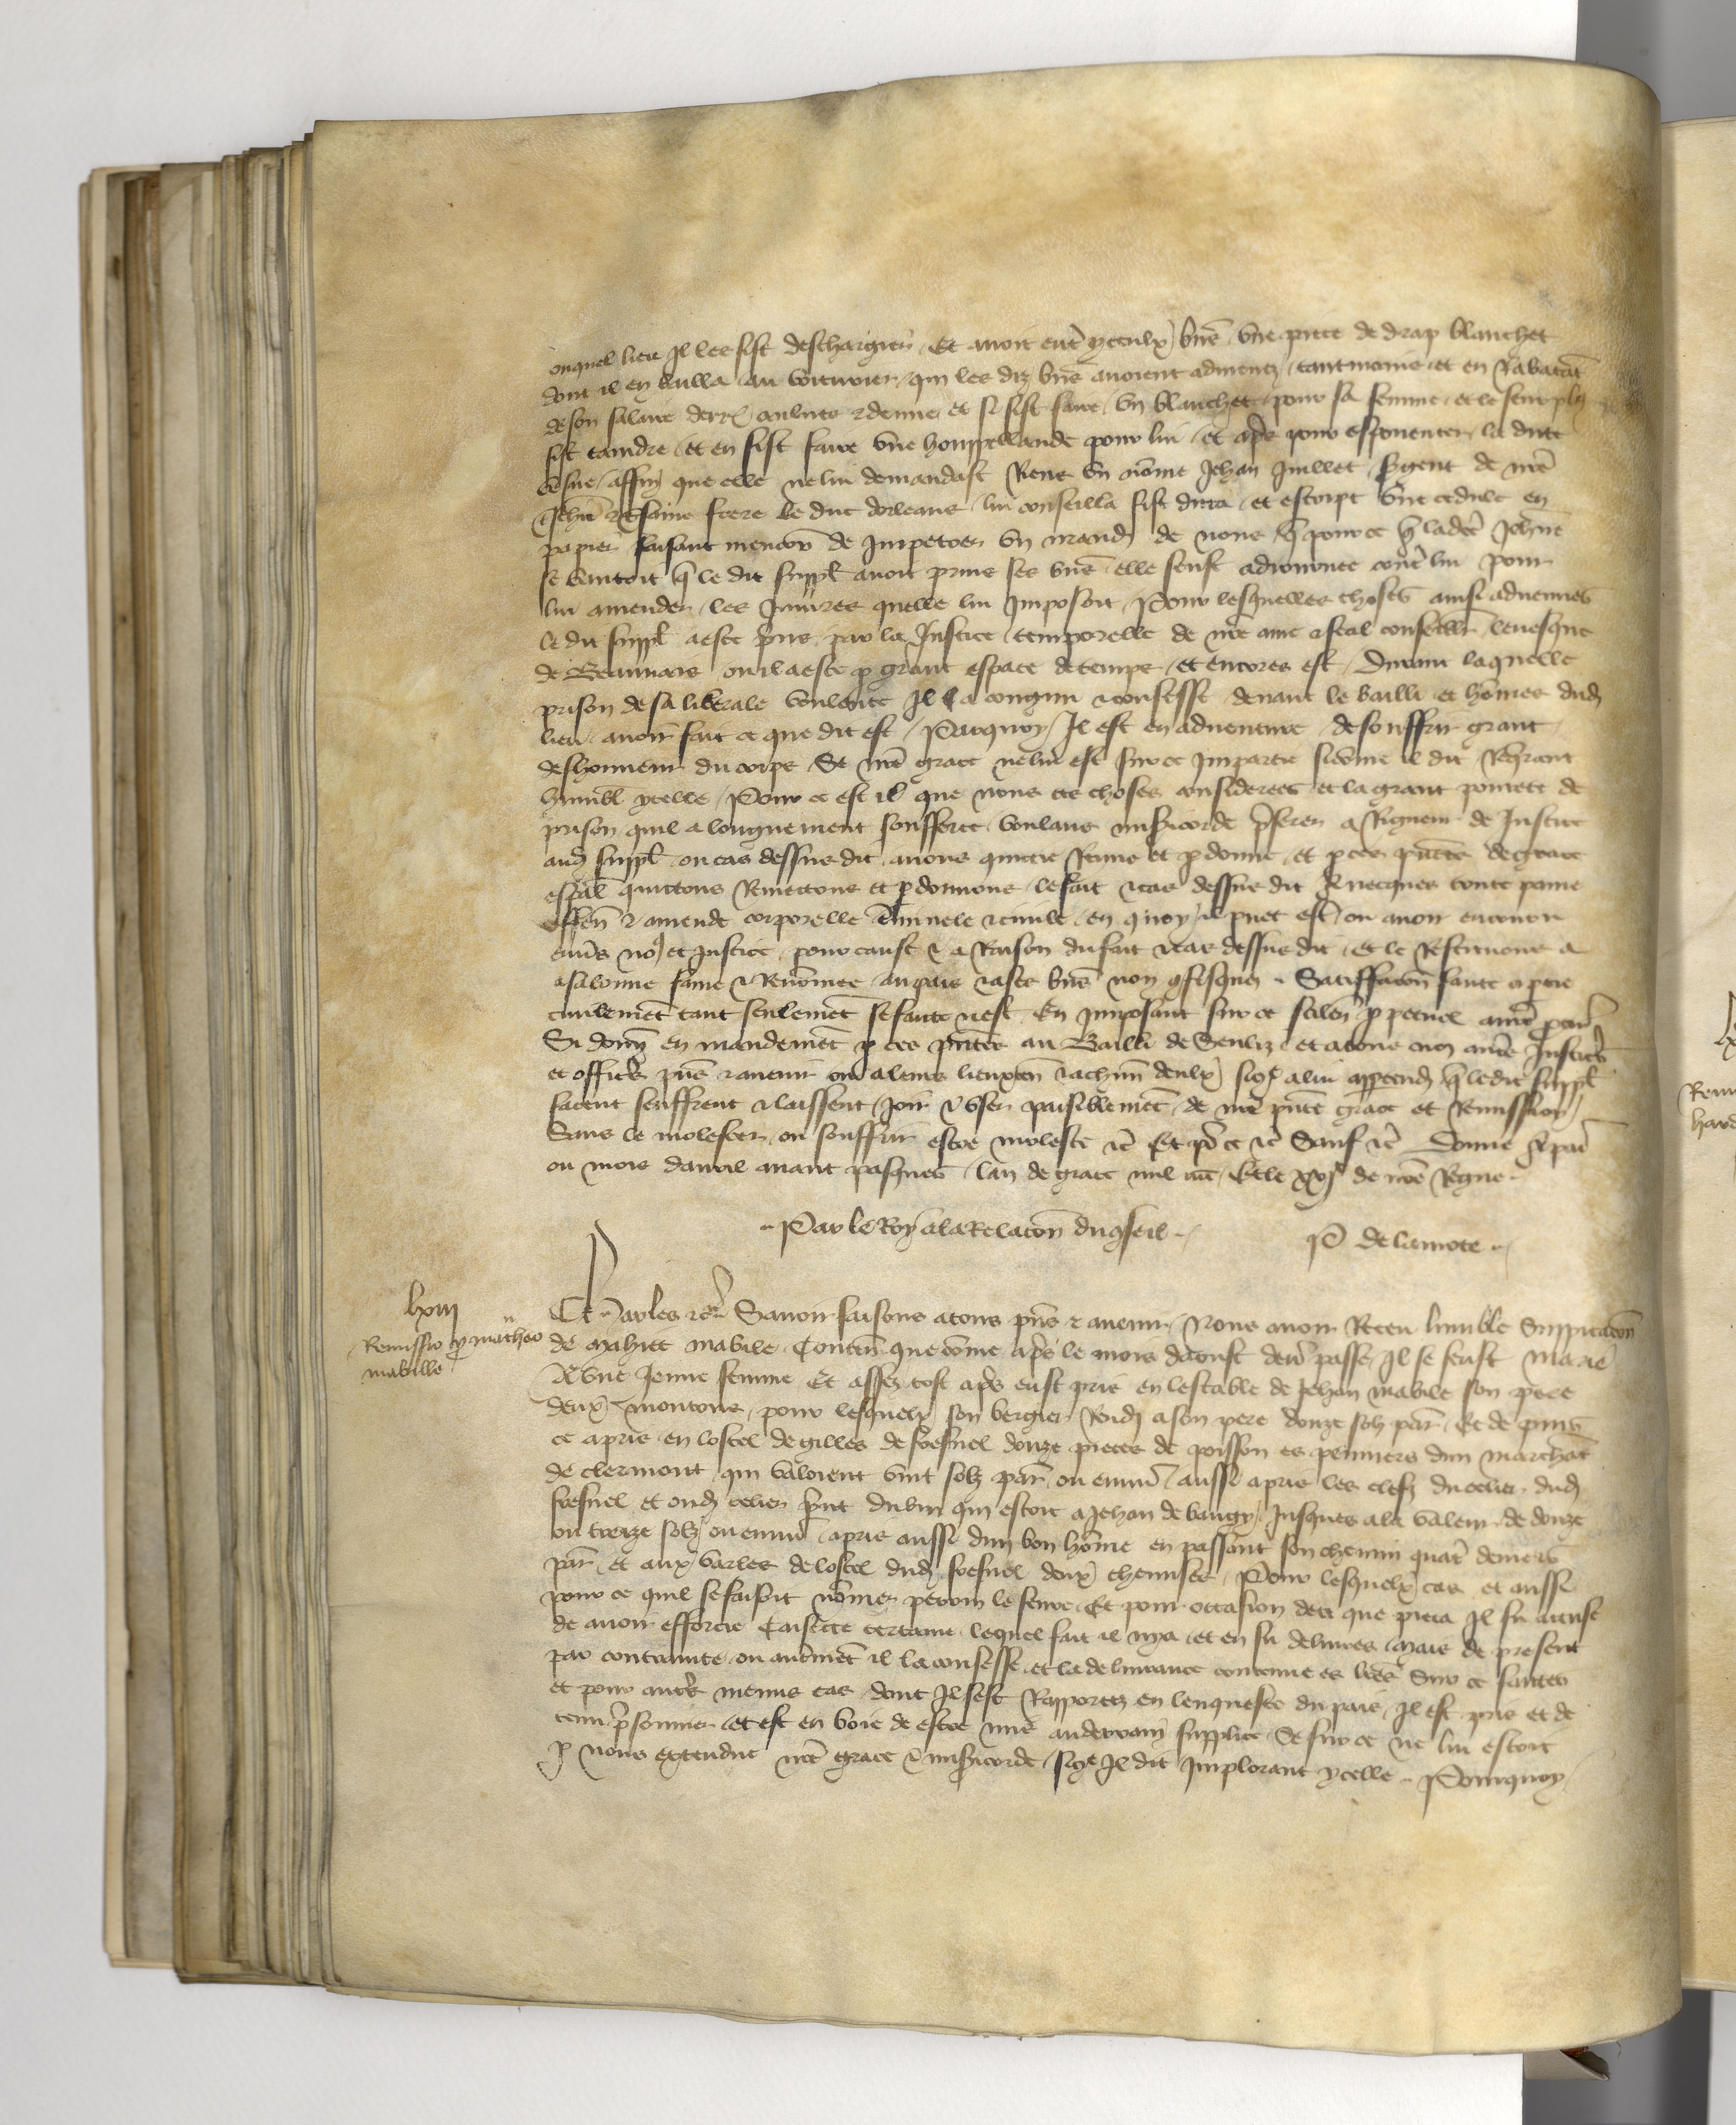 ouquel lieu Il les fist deschargier Et avoit entre yceulx biens une piece de drap blanchet
dont il en bailla au voicturier qui les diz biens avoient admenez tantmoins et en rabatant
de son salaire aulnes et demie et si fist faire un blanchet pour sa femme et le seurplus
fist taindre et en fist faire une houppellande pour lui et apres pour espouenter la dicte
affin que elle ne lui demandast Riens un nomme Jehan Juillet sergent de nostre
frere le duc dorleans lui conseilla fist dicta et escript une cedule en
papier faisant mencion de Impetrer un mandement de nous que pour ce que ladicte Jehanne
se vantoit que le dit suppliant avoit prins ses biens elle feust adiournee contre lui pour
lui amender les Iniures quelle lui Imposoit Pour lesquelles choses ainsi advenues
le dit suppliant a este prins par la Justice temporelle de nostre ame et feal conseiller levesque
de Beauvais ou il a este par grant espace de temps et encores est Durant laquelle
prison de sa liberale voulente Il a congnu et confesse devant le bailli et hommes dudit
lieu avoir fait ce que dit est Parquoy Il est en adventure de souffrir grant
deshonneur du corps Se nostre grace ne lui est sur ce Impartie si comme il dit Requerant
humblement ycelle Pour ce est il que nous ces choses considerees et la grant povrete de
prison quil a longuement soufferte voulans misericorde preferer a Rigueur de Justice
audit suppliant ou cas dessusdit avons quictie Remis et pardonne et par ces presentes de grace
especial quictons Remectons et pardonnons le fait et cas dessus dit Avecques toute paine
offense et amende corporelle criminele et civile en quoy il puet estre ou avoir encouru
envers nous et Justice pour cause et a Raison du fait et cas dessus dit Et le Restituons a
a sa bonne fame et Renommee au pais et a ses biens non confisquez Satiffacion faicte a partie
civilement tant seulement se faicte nest En Imposant sur ce silence perpetuel a nostre procureur
Si donnons en mandement par ces presentes au Bailli de Senliz et a tous noz autres Justiciers
et officiers presens et avenir ou a leurs lieuxtenans et a chascun deulx si comme a lui appartendra que ledit suppliant
facent seuffrent et laissent Joir et user paisiblement de nostre presente grace et Remission
Sans le molester ou souffrir estre moleste etc Et que ce etc Sauf etc Donne a paris
ou mois davril avant pasques lan de grace mil Et le xxje de nostre Regne
Par le Roy a la Relacion du conseil P de lamote
lxiij
Remissio pro matheo
mabille
Charles etc Savoir faisons a tous presens et avenir Nous avoir Receu lumble Supplicacion
de mahiet mabile Contenant que comme apres le mois daoust derrenier passe Il se feust marie
A une Jeune femme Et assez tost apres eust pris en lestable de Jehan mabile son pere
deux moutons pour lesquelx son bergier Rendi a son pere douze solz parisis Et de puis
ce a pris en lostel de gilles de fresnel douze pieces de poisson es penniers dun marchant
de clermont qui valoient vint solz parisis ou environ aussi a pris les clefz du celier dudit
fresnel et oudit celier print du vin qui estoit a Jehan de baugy Jusques a la valeur de douze
ou treize solz ou environ a pris aussi dun bon homme en passant son chemin quatre deniers
parisis et aux varles de lostel dudit fresnel deux chemises Pour lesquelx cas et aussi
pour ce quil se faisoit nommer perrin le fevre Et pour occasion de ce que pieca Il fu accuse
de avoir efforcie certaine lequel fait il nya et en fu delivres Mais de present
par contrainte ou autrement il la confesse et la delivrance contenue es lettres Sur ce faictes
et pour autres menus cas dont Il sest Rapportez en lenqueste du pais Il est pris et de
tenu prisonnier et est en voie de estre mis au derrenier supplice Se sur ce ne lui estoit
par nous extendue nostre grace et misericorde si comme Il dit Implorant ycelle Pourquoy